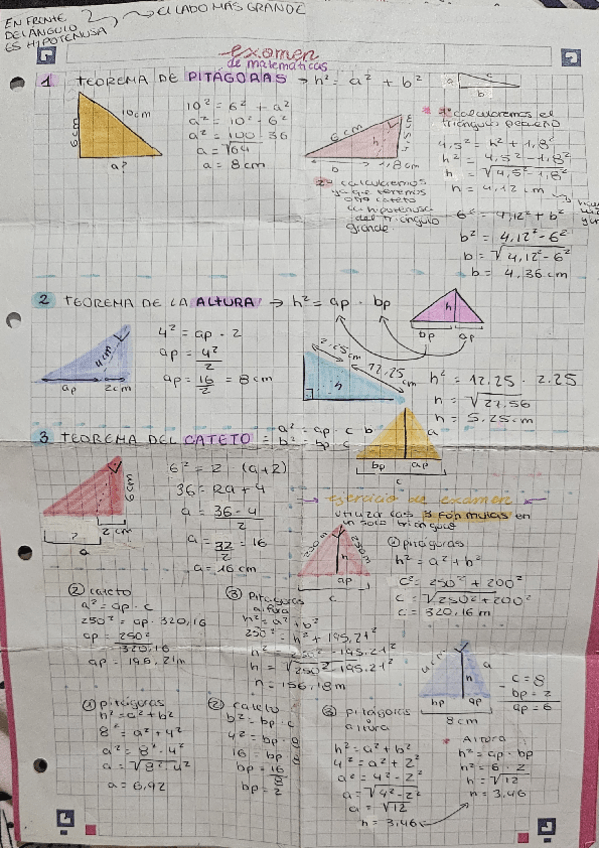 EN FRENTE
DEL ÁNGULO
ES HIPOTENUSA
EL LADO MÁS GRANDE
examen
de matemáticas
1 TEOREMA DE PITÁGORAS → h² = a² + b²
b
6cm
10cm
a?
10² = 6² + a²
a² = 10² - 6²
a² = 100 - 36
a = √64
a = 8cm
6cm
h
b
1,8cm
1º calcularemos el
triángulo pequeño
4,5² = h² + 1,8²
h² = 4,5² - 1,8²
h = √4,5² - 1,8²
h = 4,12 cm
2º calcularemos
ya que tenemos
otro cateto
la hipotenusa
del triángulo
grande
6² = 4,12² + b²
b² = 4,12² - 6²
b = √4,12² - 6²
b = 4,36 cm
2 TEOREMA DE LA ALTURA → h² = ap · bp
h
bp
ap
4cm
ap
2cm
4² = ap · 2
ap = 4²/2
ap = 16/2 = 8cm
2.25cm
12.25cm
h
h² = 12.25 · 2.25
h = √27.56
h = 5.25cm
3 TEOREMA DEL CATETO = a² = ap · c
b² = bp · c
b
a
bp
ap
c
6cm
?
2cm
a
6² = 2 (a+2)
36 = 2a + 4
a = 36 - 4/2
a = 32/2 = 16
a = 16cm
→ ejercicio de examen ←
utilizar las 3 fórmulas en
un solo triángulo
200m
250m
h
ap
c
① pitágoras
h² = a² + b²
c² = 250² + 200²
c = √250² + 200²
c = 320,16m
② cateto
a² = ap · c
250² = ap · 320,16
ap = 250²/320,16
ap = 195,21m
③ Pitágoras
altura
h² = a² + b²
250² = h² + 195,21²
h² = 250² - 195.21²
h = √250² - 195.21²
h = 156,18m
4cm
a
h
bp
ap
8cm
c = 8
bp = 2
ap = 6
① pitágoras
h² = a² + b²
8² = a² + 4²
a² = 8² - 4²
a = √8² - 4²
a = 6,92
② cateto
b² = bp · c
4² = bp · 8
16 = bp 8
bp = 16/8
bp = 2
③ pitágoras
altura
h² = a² + b²
4² = a² + 2²
a² = 4² - 2²
a = √4² - 2²
a = √12
h = 3,46
Altura
h² = ap · bp
h² = 6 · 2
h = √12
h = 3,46